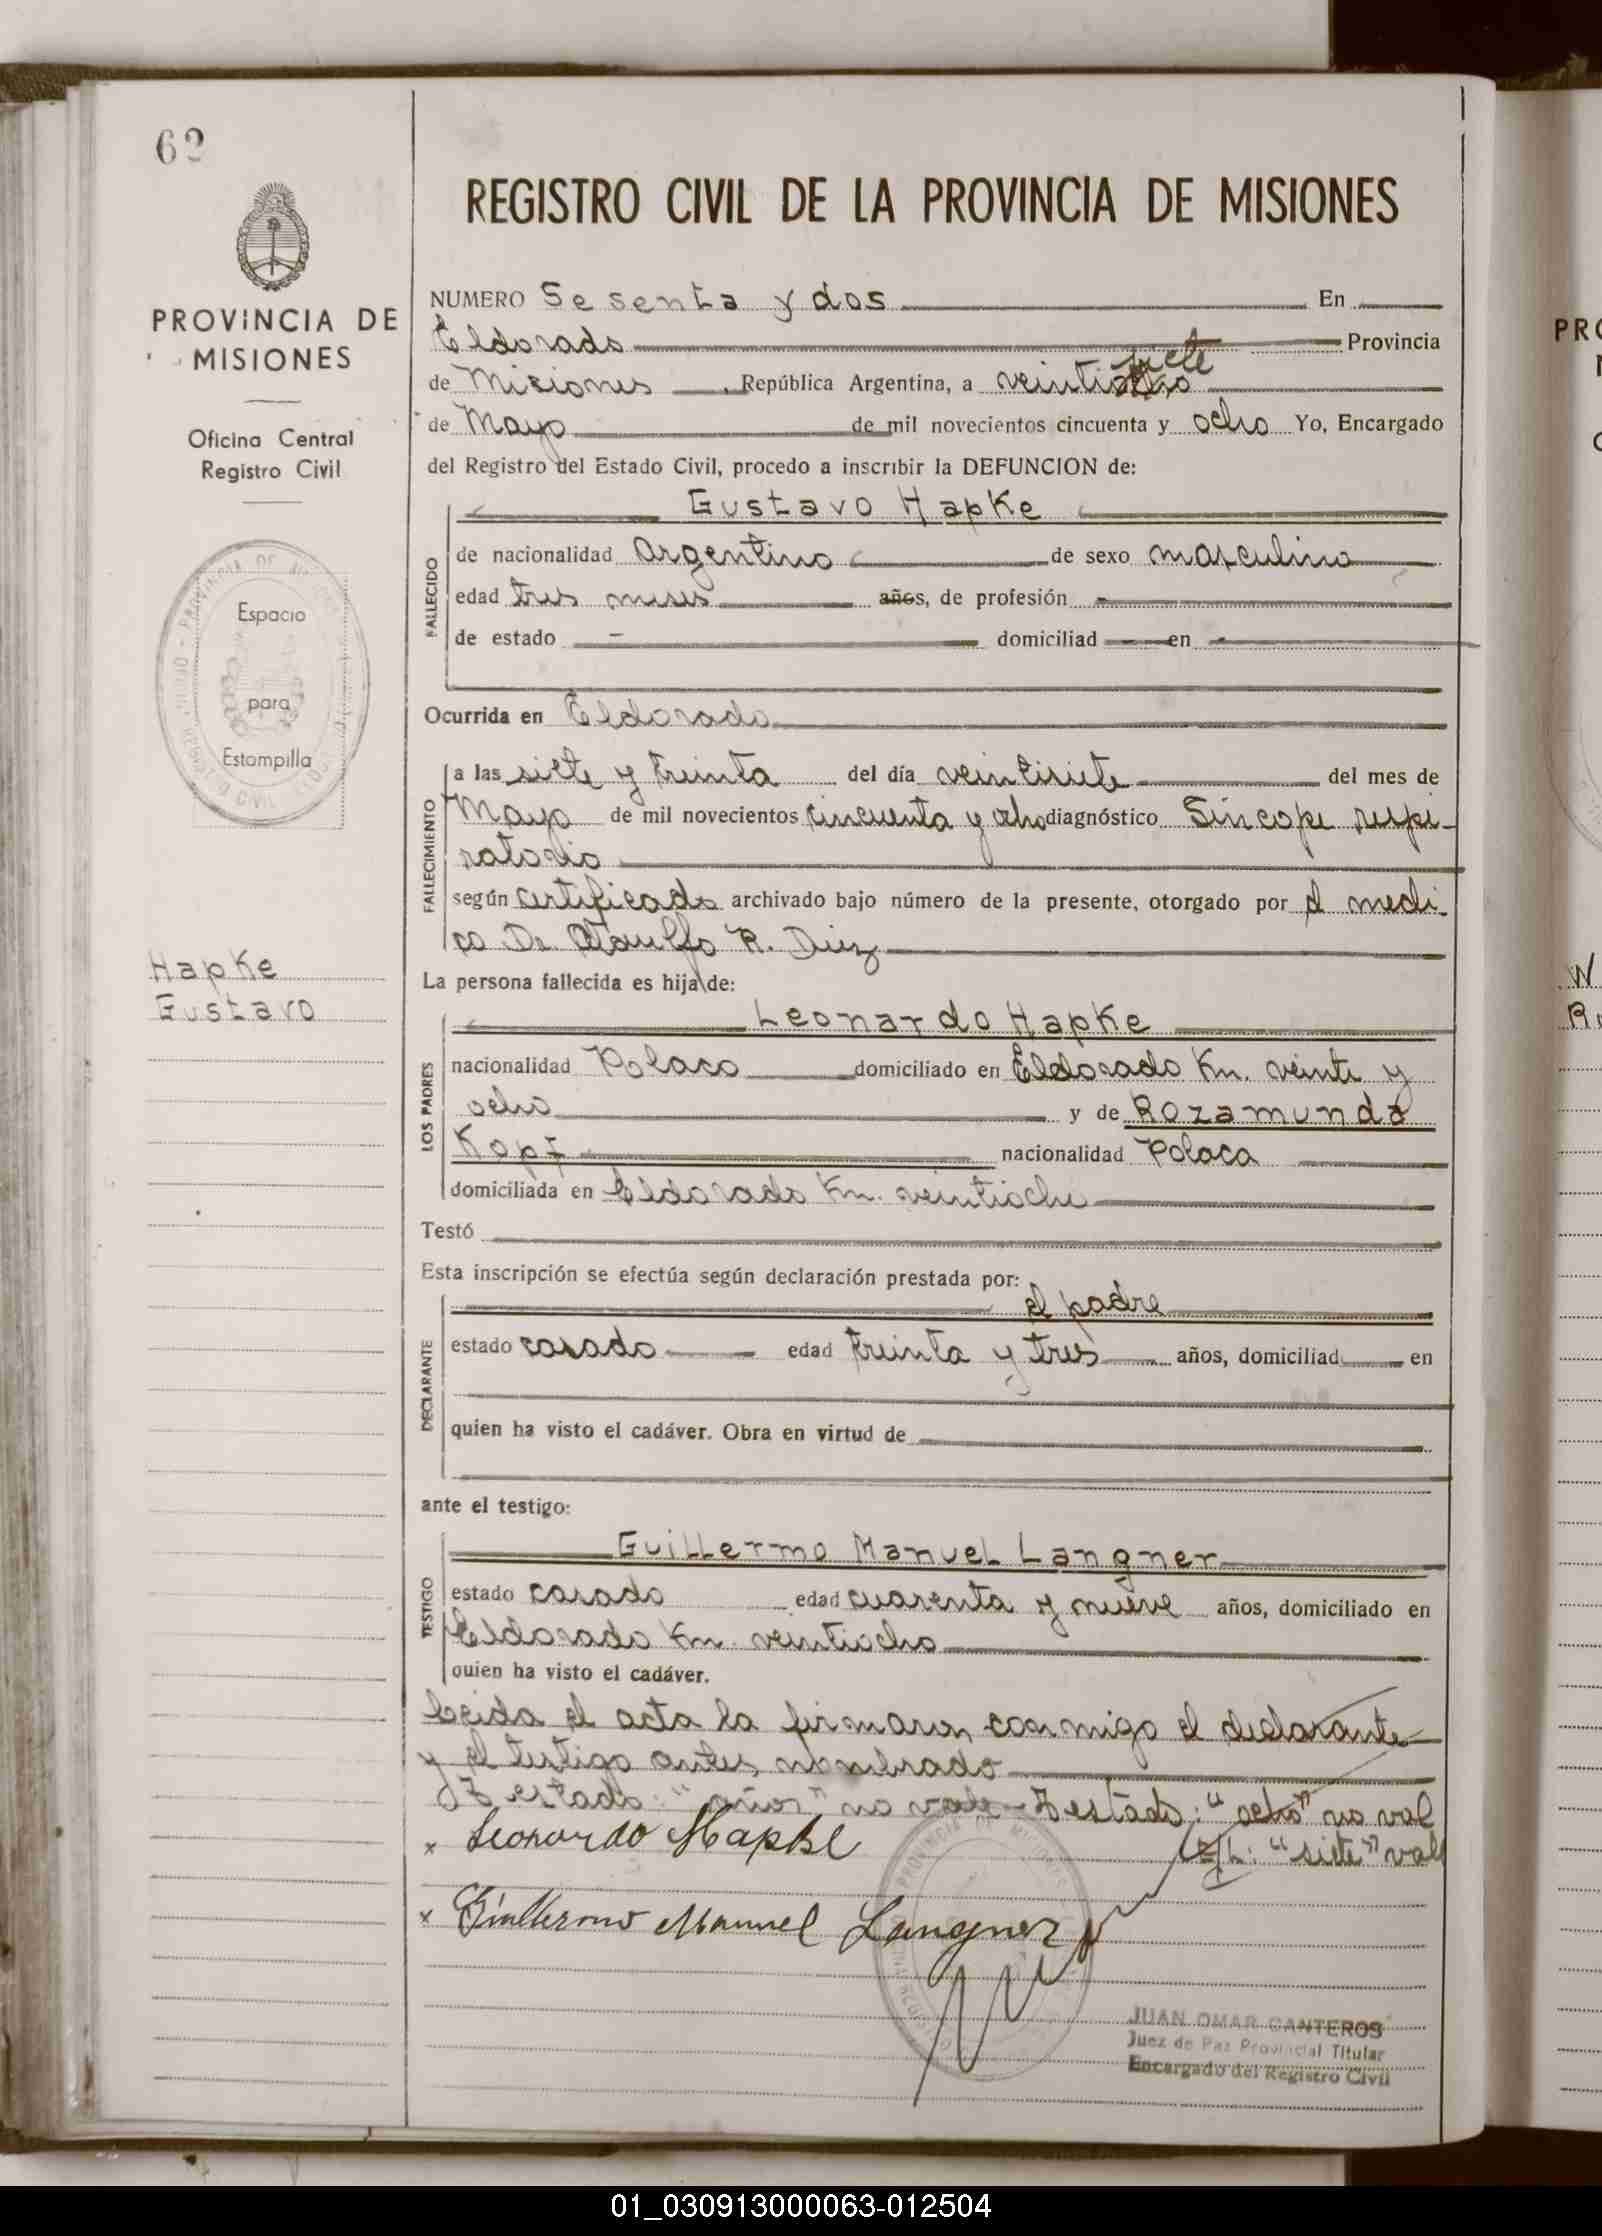 62
PROVINCIA DE
MISIONES
Oficina Central
Registro Civil
Espacio
para
Estampilla
Hapke
Gustavo
REGISTRO CIVIL DE LA PROVINCIA DE MISIONES
NUMERO Sesenta y dos En
Eldorado Provincia
siete
de Misiones República Argentina, a veintiocho
de Mayo de mil novecientos cincuenta y ocho Yo, Encargado
del Registro del Estado Civil, procedo a inscribir la DEFUNCION de:
Gustavo Hapke
FALLECIDO
de nacionalidad argentino de sexo masculino
edad tres meses años, de profesión -
de estado - domiciliad en -
Ocurrida en Eldorado
FALLECIMIENTO
a las siete y treinta del día veintisiete del mes de
Mayo de mil novecientos cincuenta y ocho diagnóstico Síncope respi-
ratorio
según certificado archivado bajo número de la presente, otorgado por el médi-
co Dr. R. Diez
La persona fallecida es hija de:
LOS PADRES
Leonardo Hapke
nacionalidad Polaco domiciliado en Eldorado Km. veinte y
ocho y de Rozamunda
Kopf nacionalidad Polaca
domiciliada en Eldorado Km. veintiocho
Testó
Esta inscripción se efectúa según declaración prestada por:
DECLARANTE
el padre
estado casado edad treinta y tres años, domiciliad en
quien ha visto el cadáver. Obra en virtud de
ante el testigo:
TESTIGO
Guillermo Manuel Langner
estado casado edad cuarenta y nueve años, domiciliado en
Eldorado Km. veintiocho
quien ha visto el cadáver.
Leida el acta la firmaron conmigo el declarante
y el testigo antes nombrado
Testado: "años" no vale - Testado: "ocho" no val
E/L: "siete" vale
x Leonardo Hapke
x Guillermo Manuel Langner
JUAN OMAR CANTEROS
Juez de Paz Provincial Titular
Encargado del Registro Civil
PRO
W
01_030913000063-012504